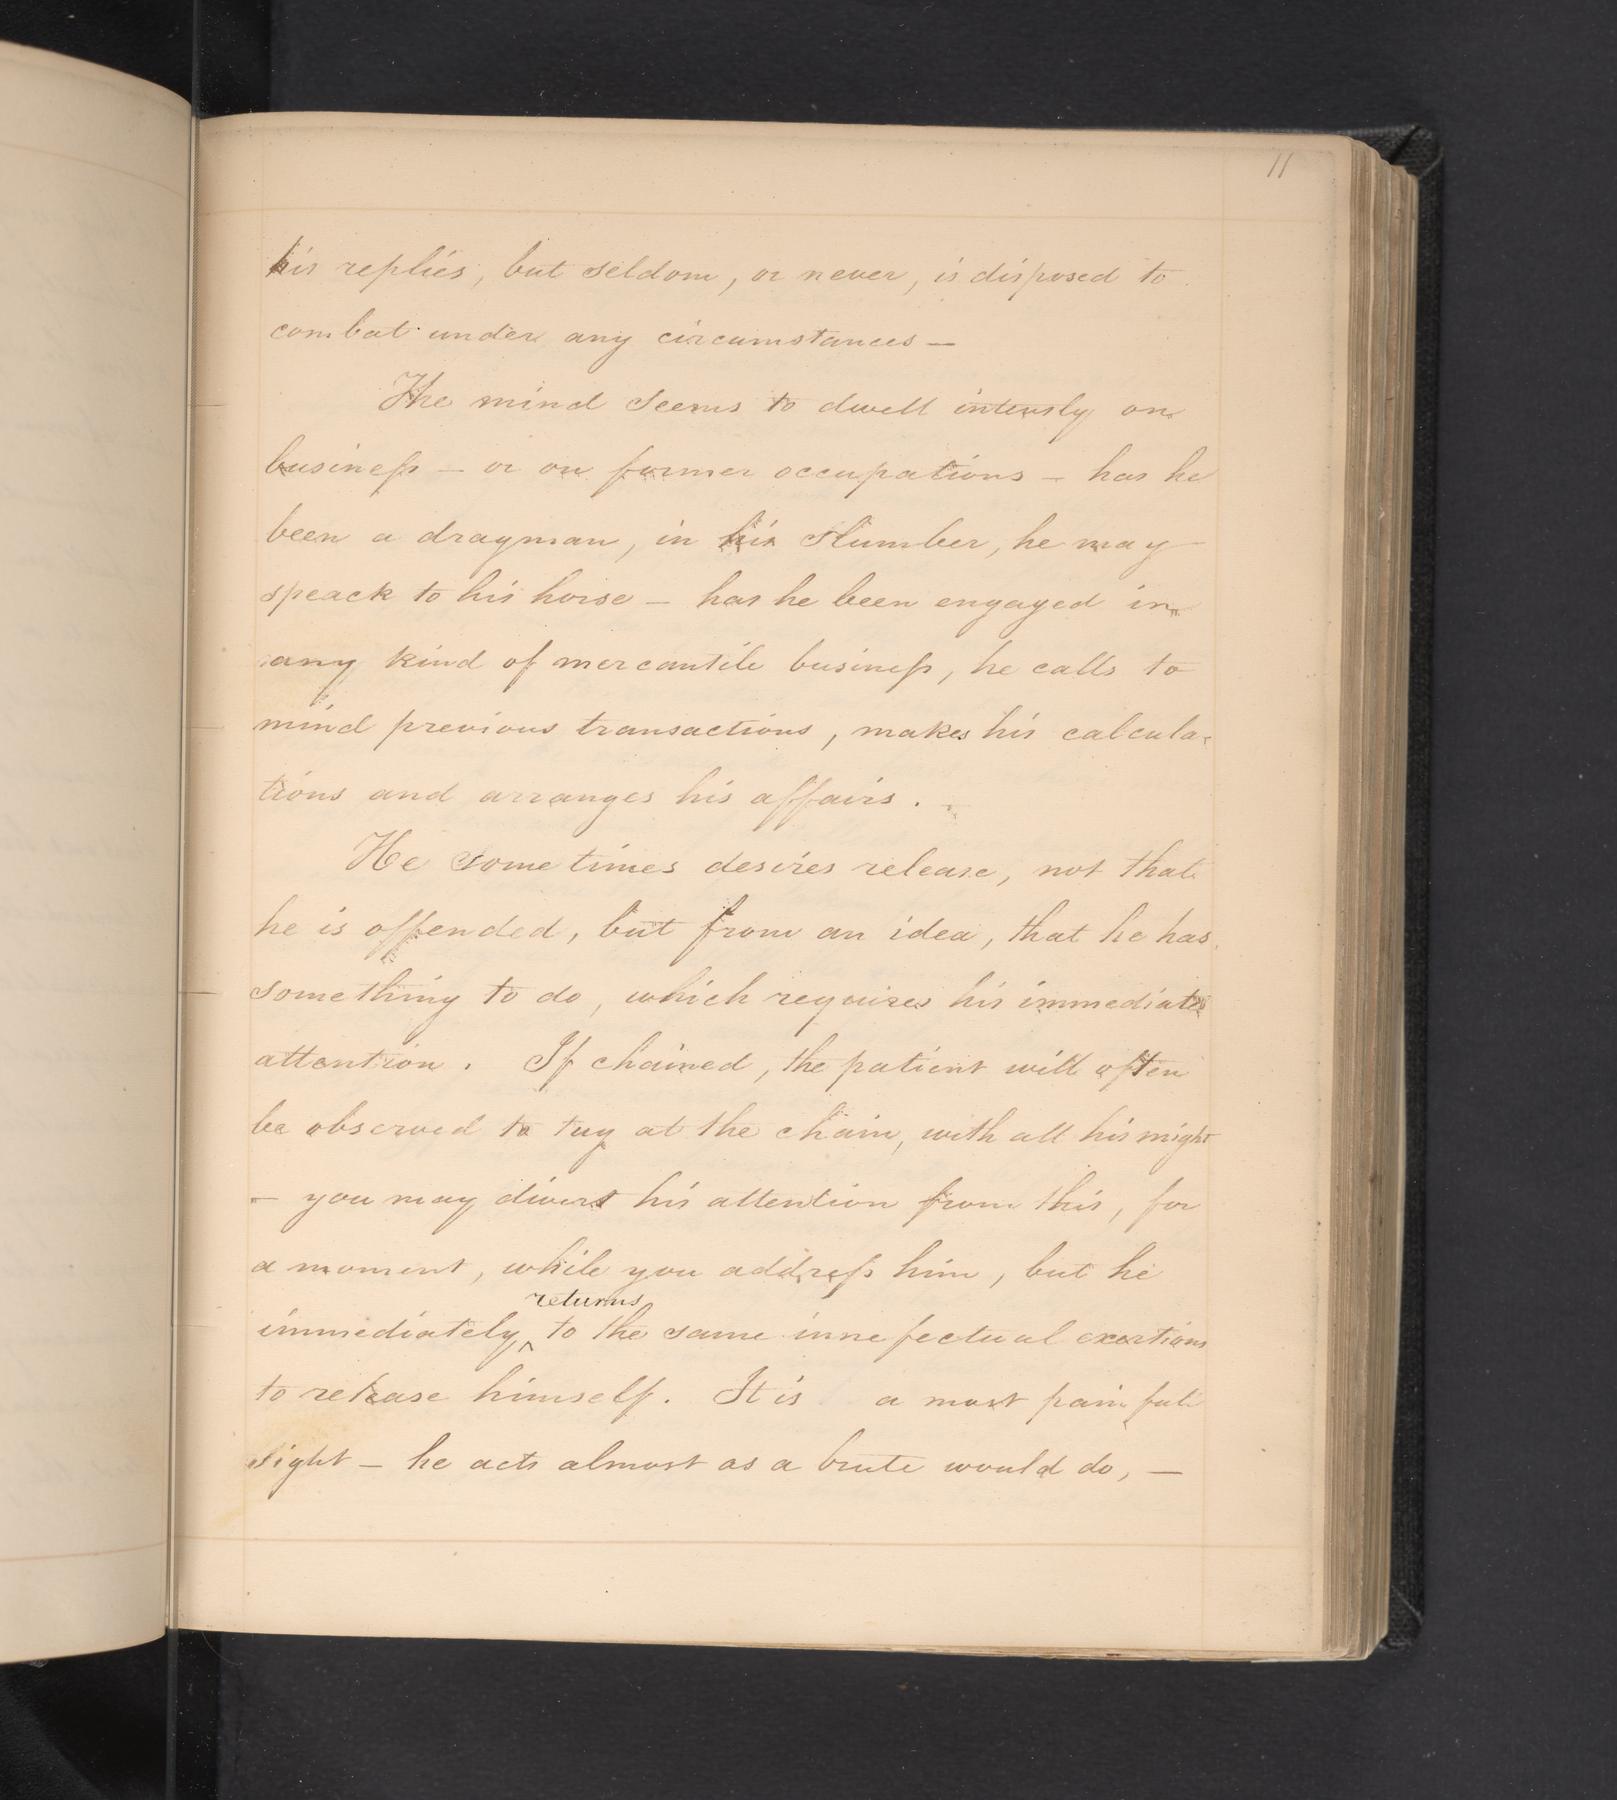 11
his replies, but seldom, or never, is disposed to
combat under any circumstances —
The mind seems to dwell intensly on
business — or on former occupations — has he
been a drayman, in his slumber, he may
speack to his horse — has he been engaged in
any kind of mercantile business, he calls to
mind previous transactions, makes his calcula-
tions and arranges his affairs.
He sometimes desires release, not that
he is offended, but from an idea, that he has
something to do, which requires his immediate
attention. If chained, the patient will often
be observed to tug at the chain, with all his might
— you may divert his attention from this, for
a moment, while you address him, but he
returns
immediately ^ to the same innefectual exertions
to release himself. It is a most painful
sight — he acts almost as a brute would do, —